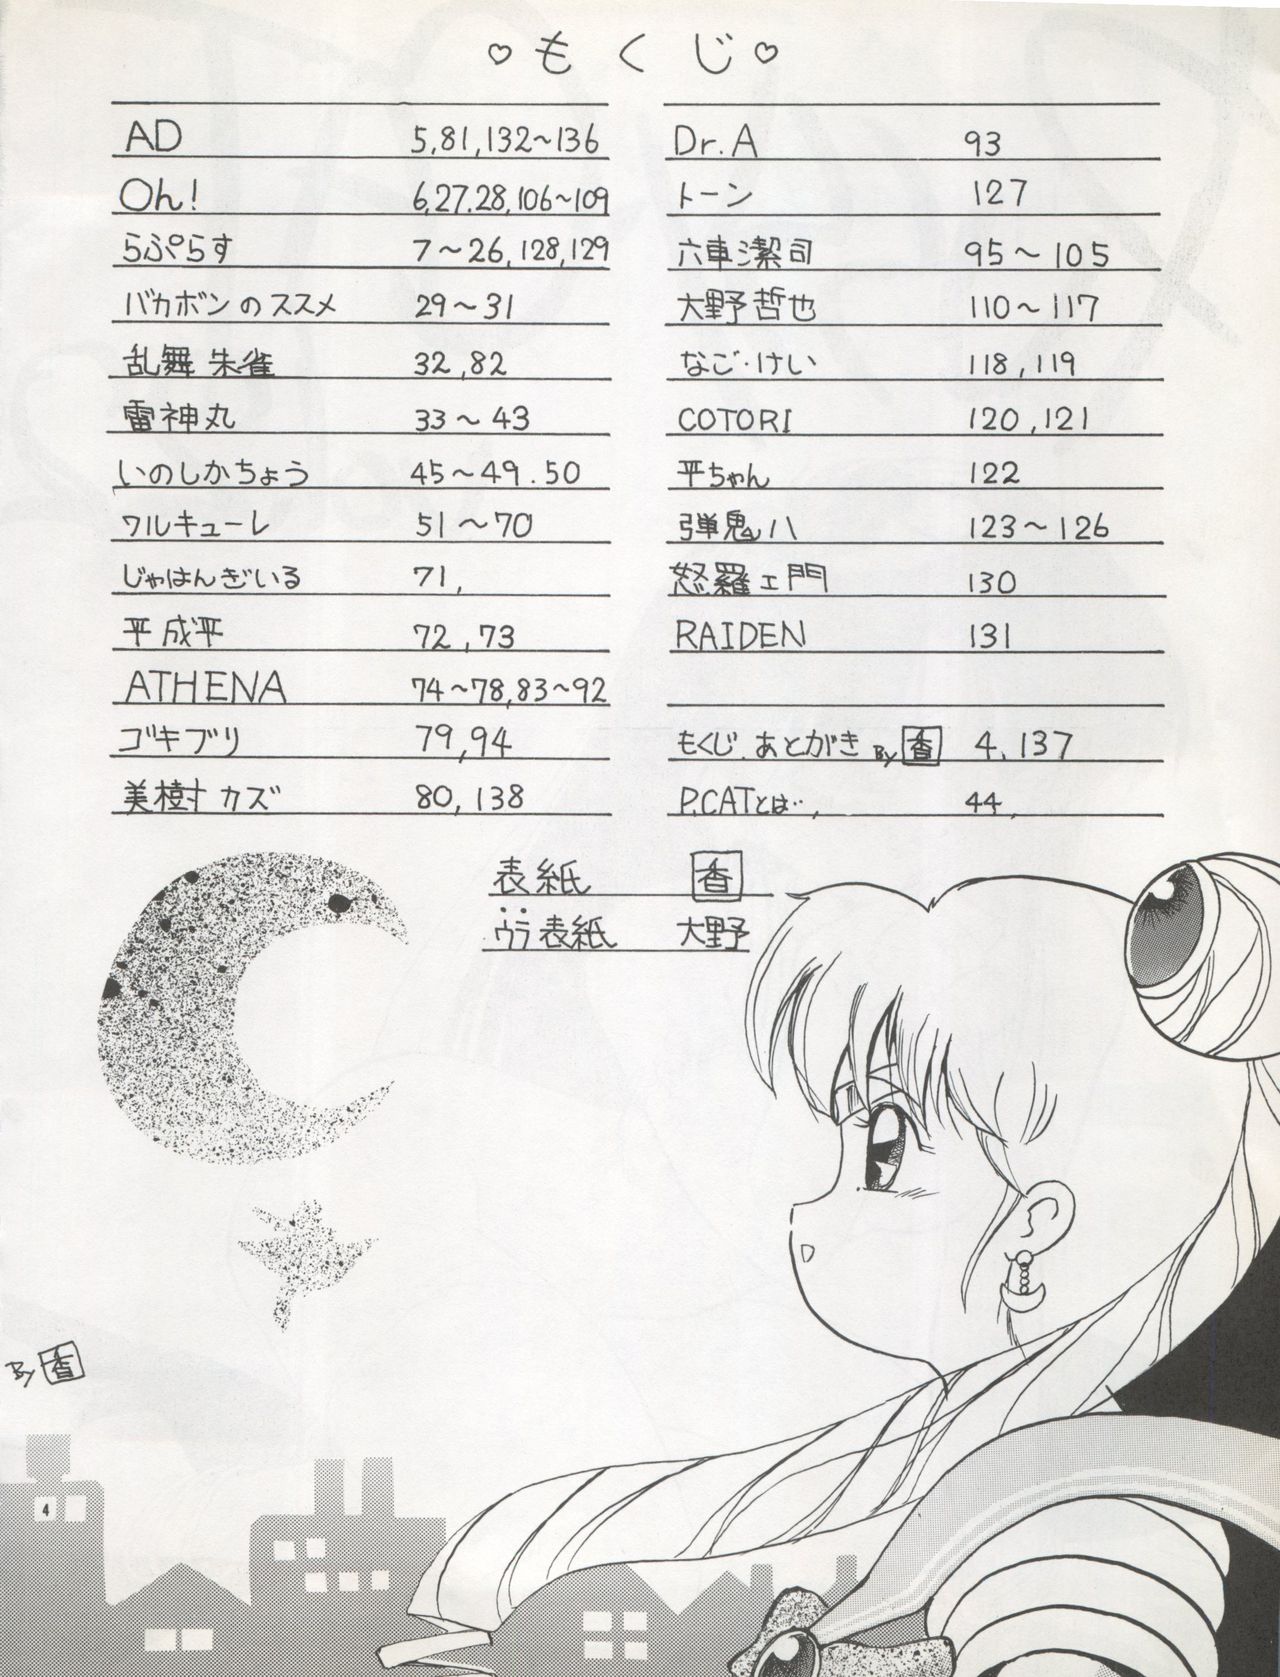 ♡もくじ♡
AD 5,81,132〜136
Oh! 6,27.28,106〜109
らぷらす 7〜26,128,129
バカボンのススメ 29〜31
乱舞 朱雀 32,82
雷神丸 33〜43
いのしかちょう 45〜49.50
ワルキューレ 51〜70
じゃはんぎいる 71,
平成平 72,73
ATHENA 74〜78,83〜92
ゴキブリ 79,94
美樹カズ 80,138
Dr.A 93
トーン 127
六車潔司 95〜105
大野哲也 110〜117
なご・けい 118,119
COTORI 120,121
平ちゃん 122
弾鬼八 123〜126
怒羅ェ門 130
RAIDEN 131
もくじ.あとがき By 香 4,137
P.CATとは‥, 44,
表紙 香
ウラ表紙 大野
By 香
4